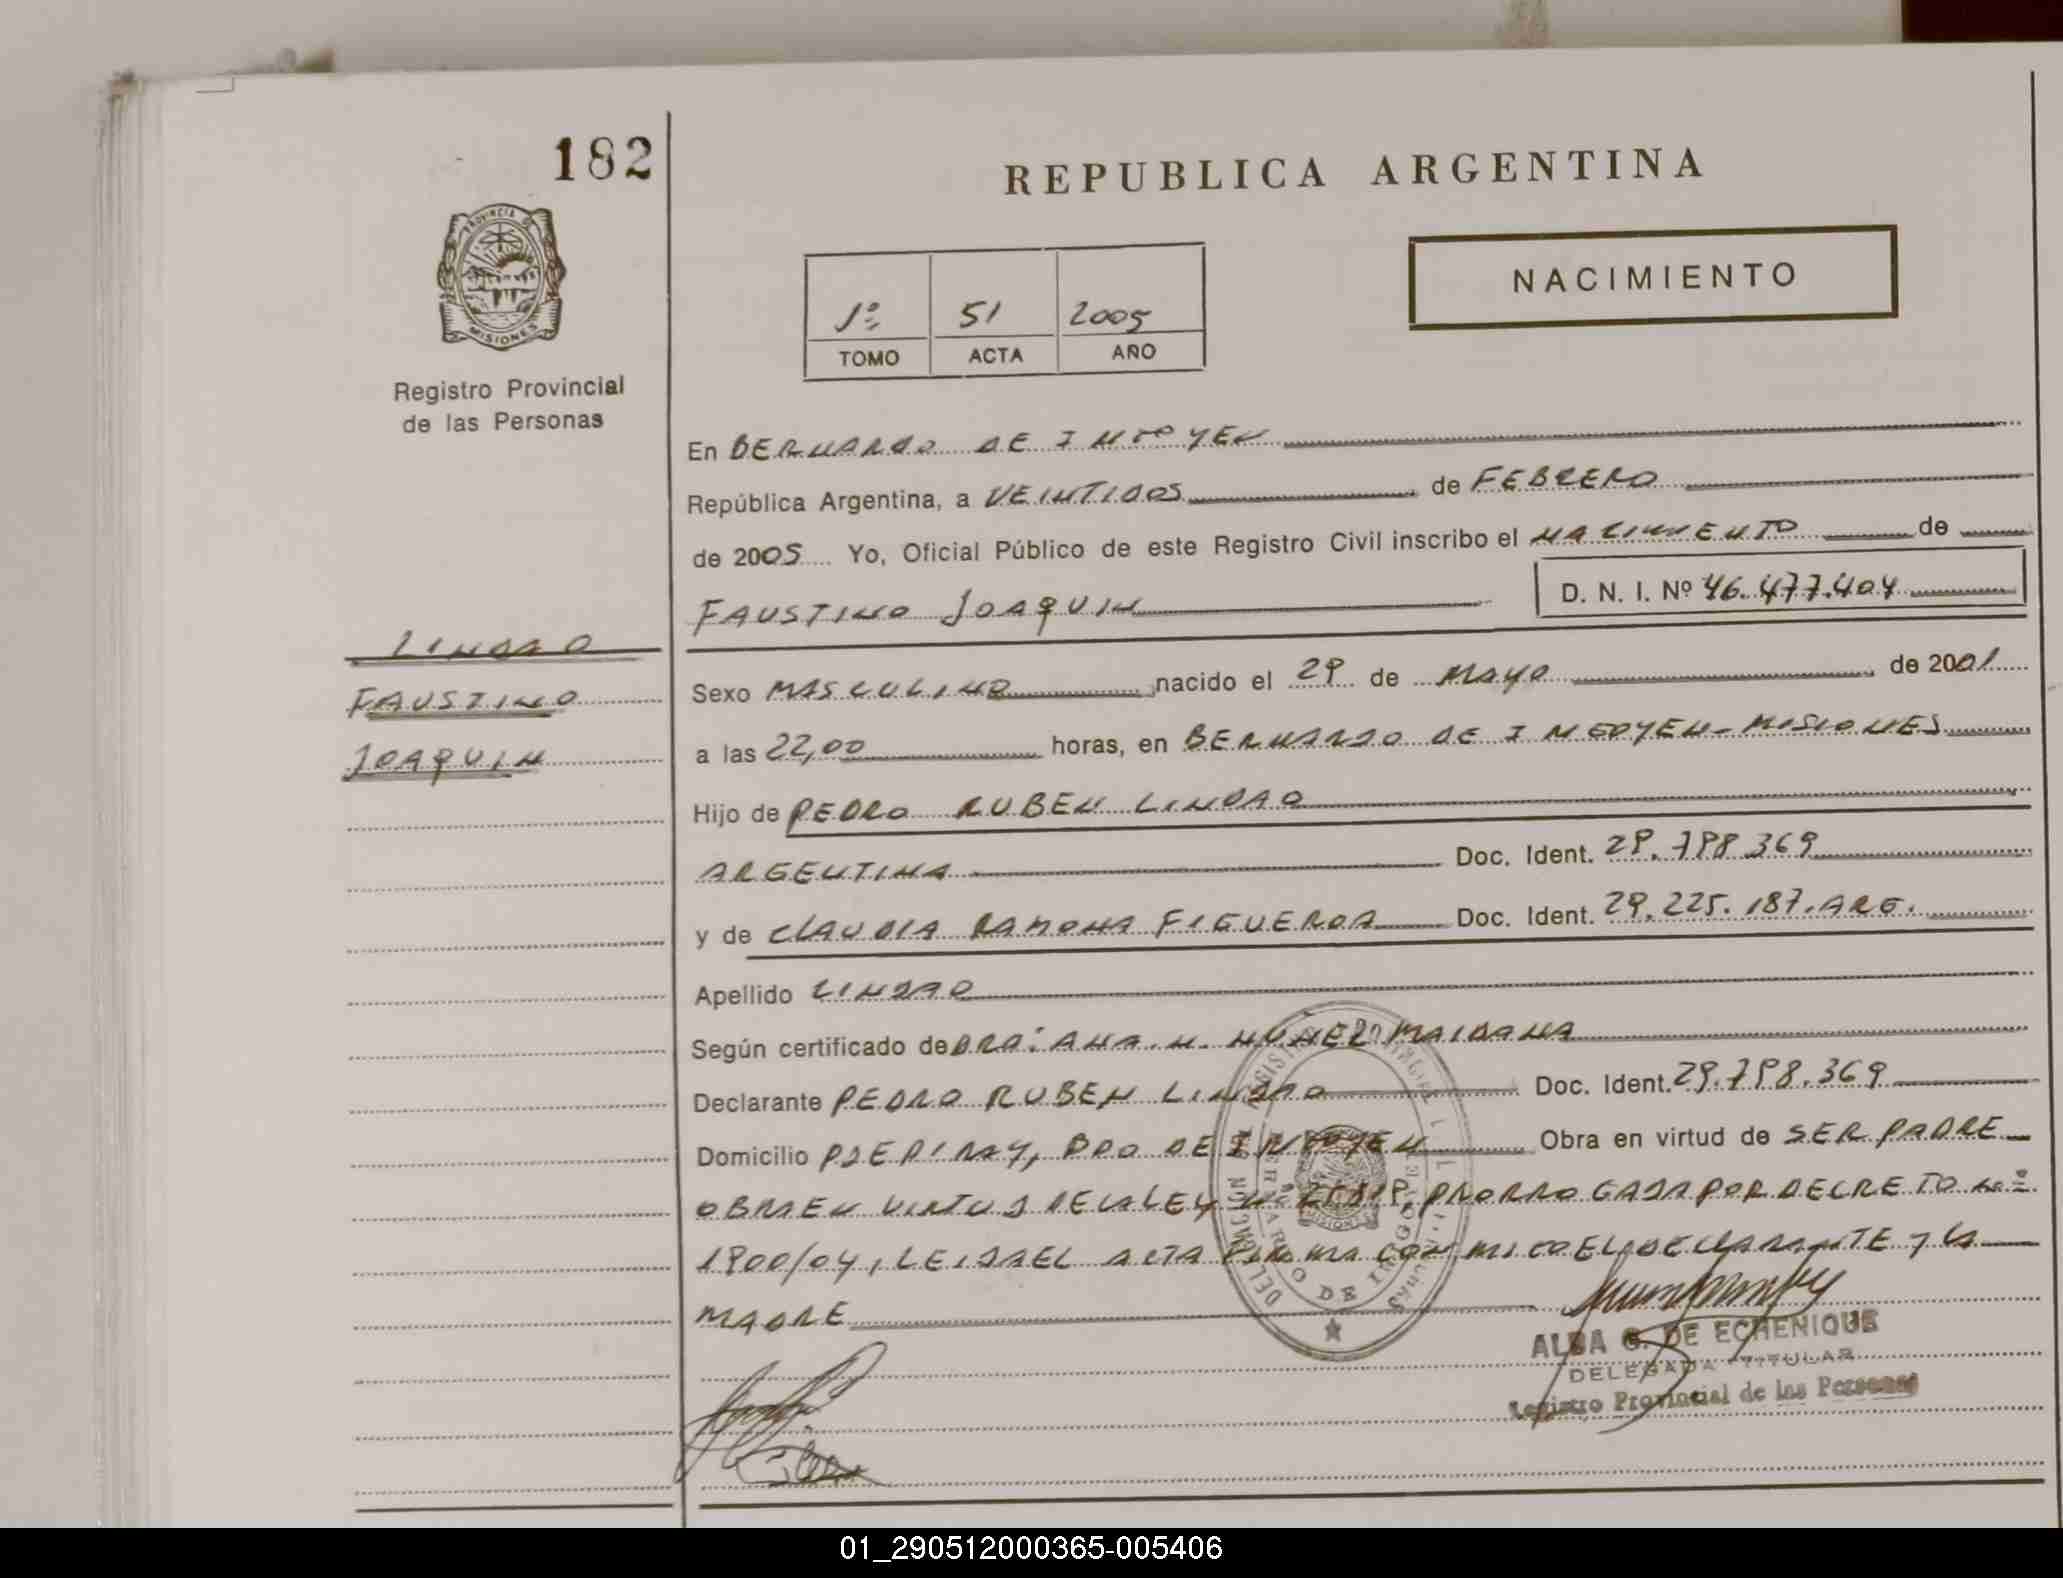 182
REPUBLICA ARGENTINA
PROVINCIA DE
MISIONES
NACIMIENTO
1º 51 2005
TOMO ACTA AÑO
Registro Provincial
de las Personas
En BERNARDO DE IRIGOYEN
República Argentina, a VEINTIDOS de FEBRERO
de 2005 Yo, Oficial Público de este Registro Civil inscribo el NACIMIENTO de
FAUSTINO JOAQUIN D. N. I. Nº 46.477.404
LINDAO
FAUSTINO
JOAQUIN
Sexo MASCULINO nacido el 29 de MAYO de 2001
a las 22,00 horas, en BERNARDO DE IRIGOYEN-MISIONES
Hijo de PEDRO RUBEN LINDAO
ARGENTINA Doc. Ident. 29.798.369
y de CLAUDIA RAMONA FIGUEROA Doc. Ident. 29.225.187.ARG.
Apellido LINDAO
Según certificado de DRA: ANA. N. NUÑEZ MAIDANA
Declarante PEDRO RUBEN LINDAO Doc. Ident. 29.798.369
Domicilio PJE PIRAY, BDO DE IRIGOYEN Obra en virtud de SER PADRE
OBRA EN VIRTUD DE LA LEY PRORROGADA POR DECRETO Nº
1900/04, LEIDA EL ACTA FIRMA CONMIGO EL DECLARANTE Y LA
MADRE
ALBA G. DE ECHENIQUE
DELEGADA TITULAR
Registro Provincial de las Personas
01_290512000365-005406